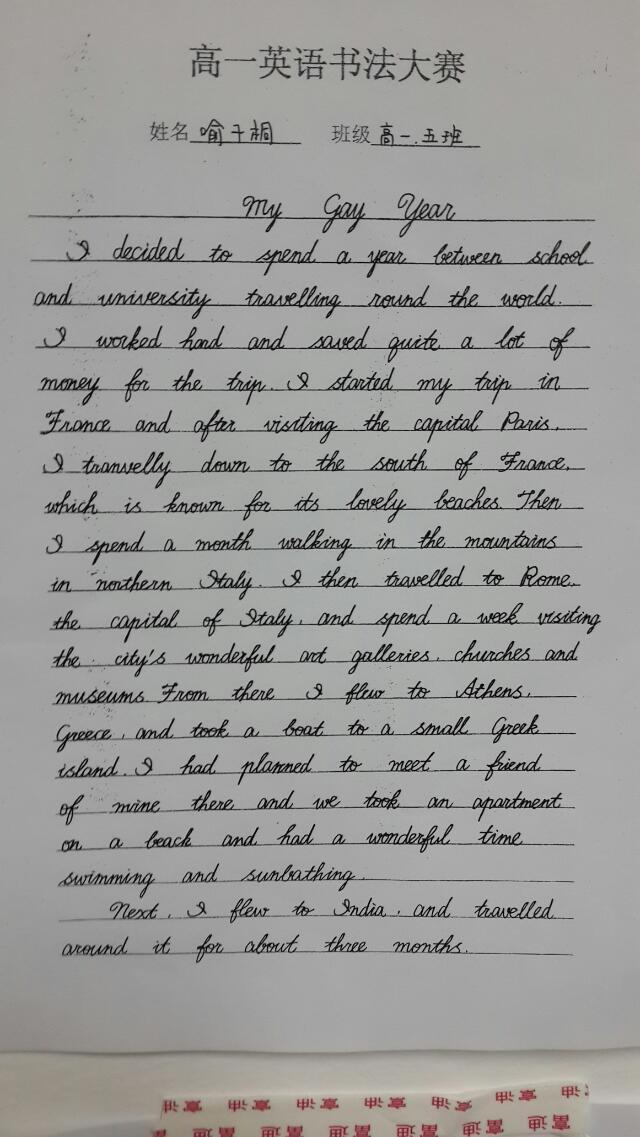 高一英语书法大赛
姓名 喻千桐 班级 高一.五班
My Gay Year
I decided to spend a year between school
and university travelling round the world.
I worked hard and saved quite a lot of
money for the trip. I started my trip in
France and after visiting the capital Paris,
I tranvelly down to the south of France,
which is known for its lovely beaches. Then
I spend a month walking in the mountains
in northern Italy. I then travelled to Rome,
the capital of Italy, and spend a week visiting
the city's wonderful art galleries, churches and
museums. From there I flew to Athens,
Greece, and took a boat to a small Greek
island. I had planned to meet a friend
of mine there and we took an apartment
on a beack and had a wonderful time
swimming and sunbathing.
Next, I flew to India, and travelled
around it for about three months.
富迪 富迪 富迪 富迪 富迪 富迪 富迪
富迪 富迪 富迪 富迪 富迪 富迪